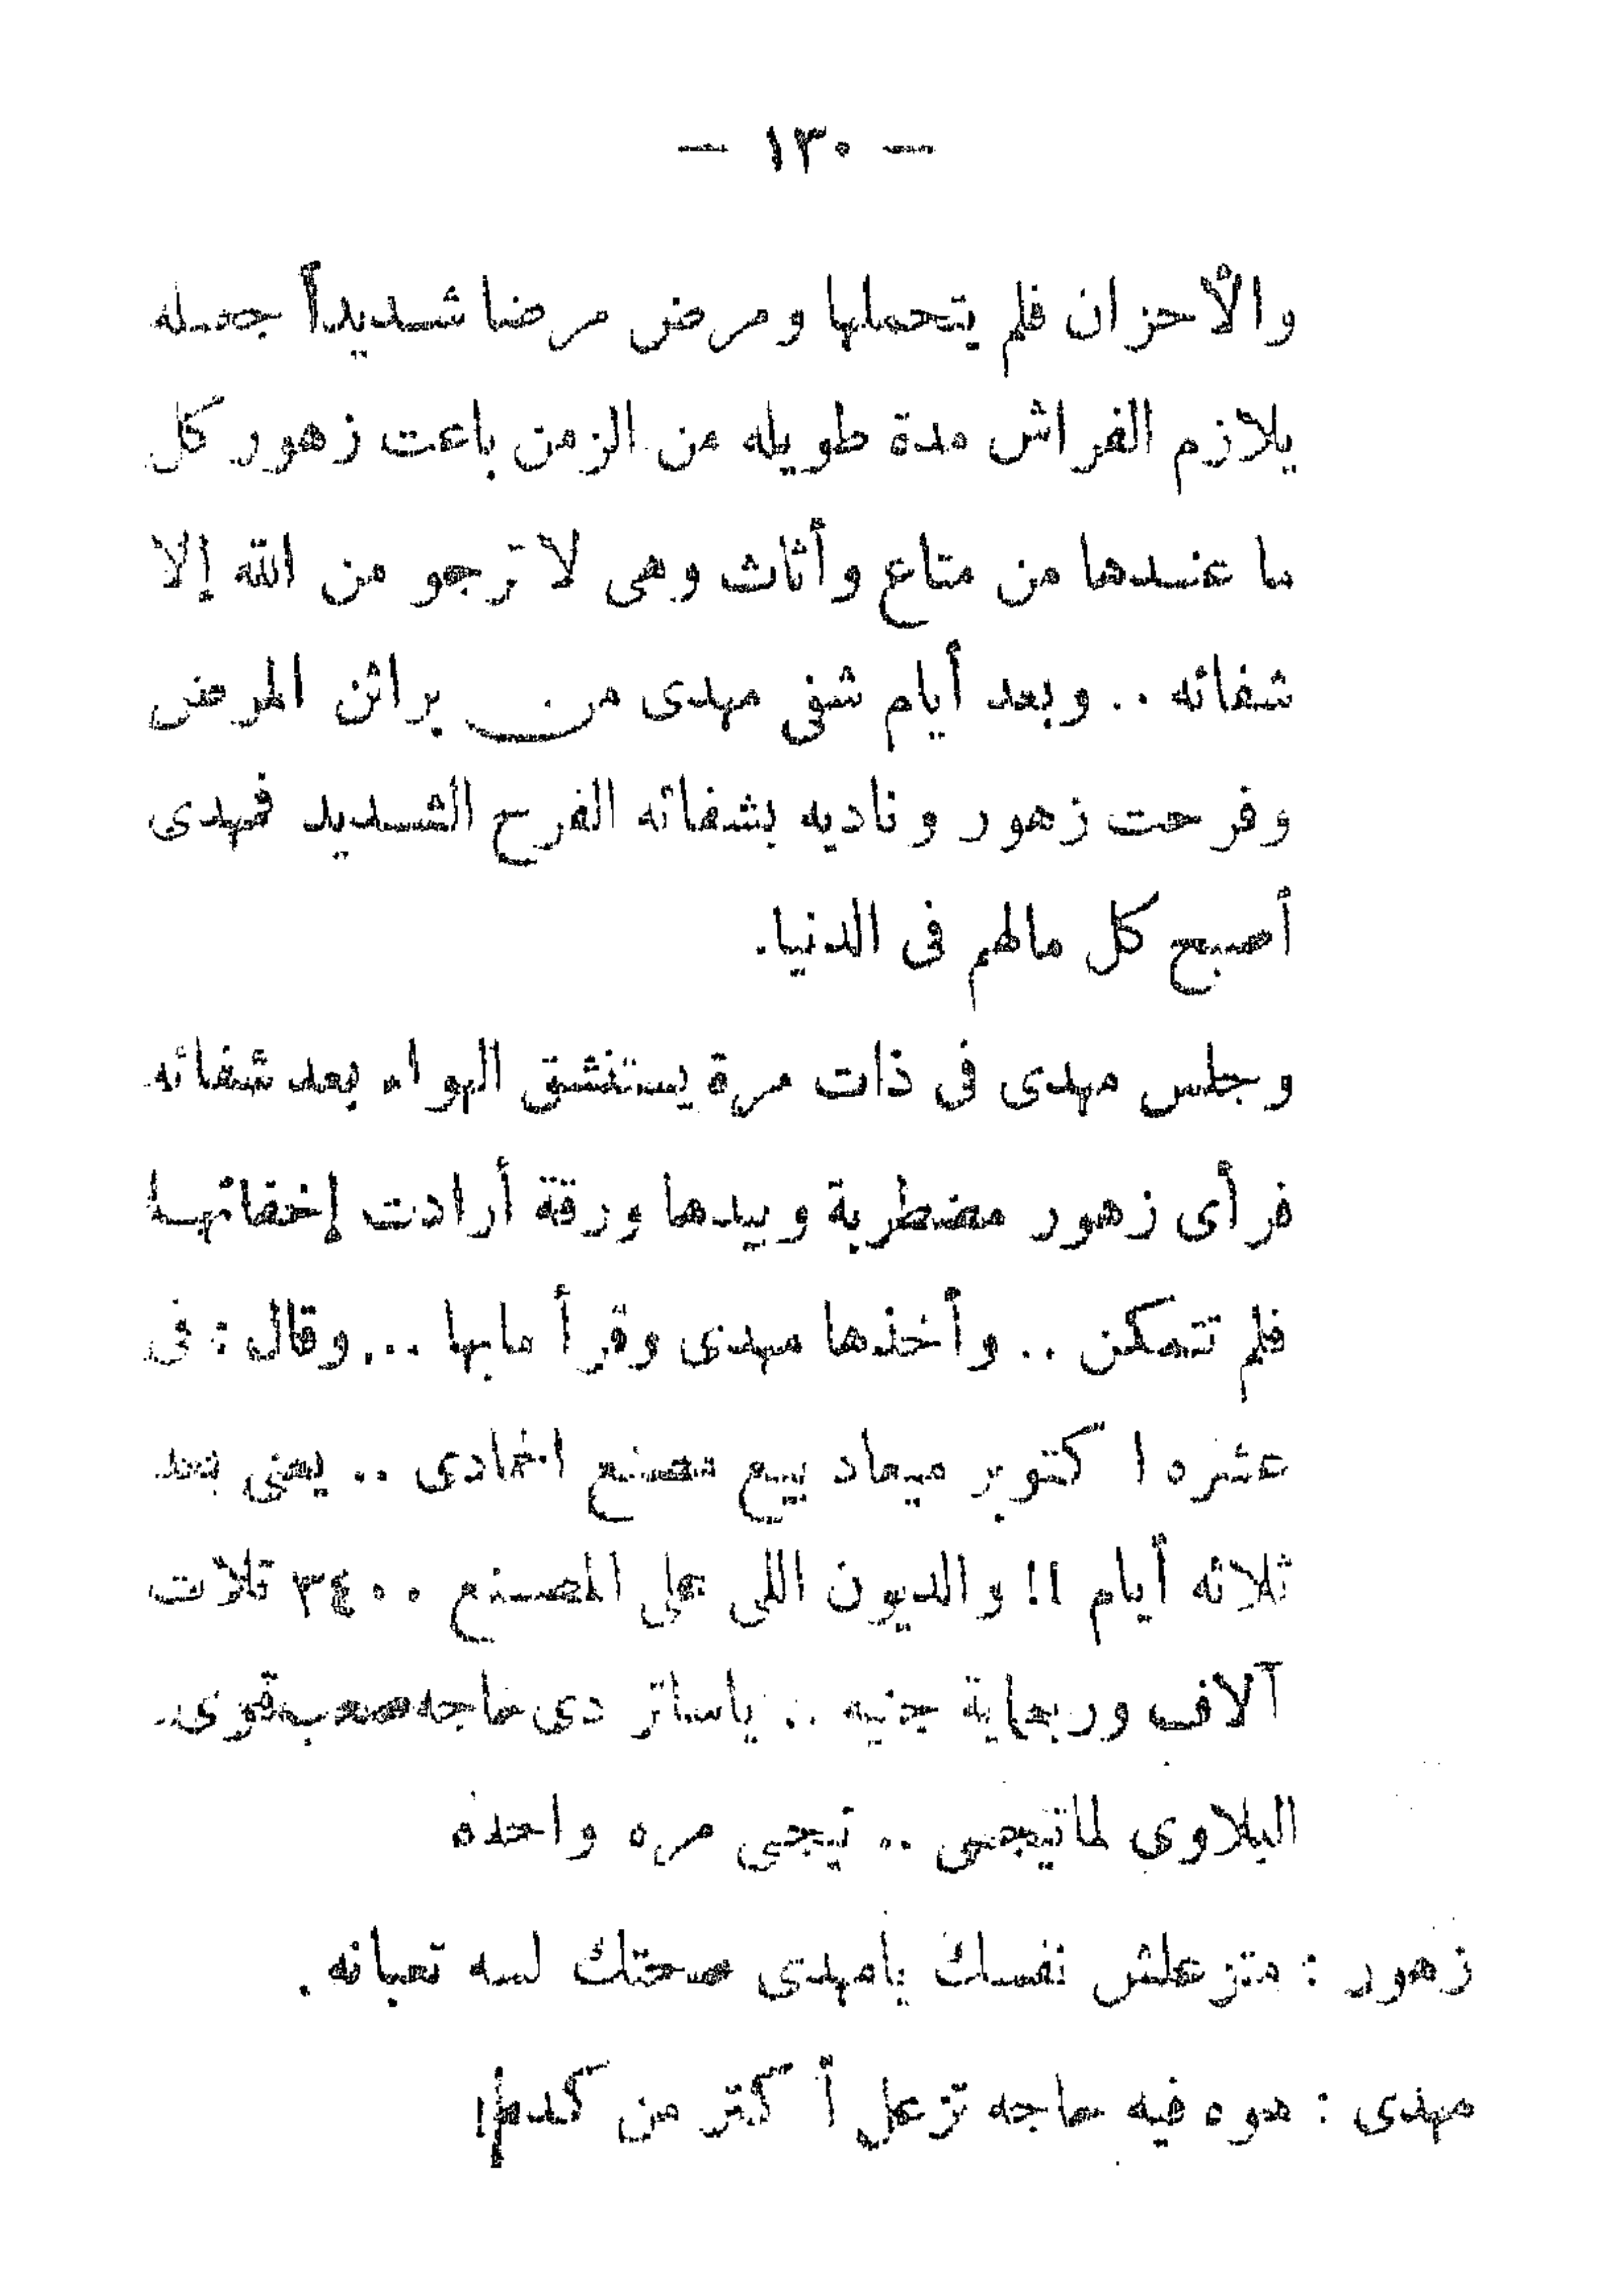 — ١٣٠ —
والأحزان فلم يتحملها ومرض مرضا شديداً جعله
يلازم الفراش مدة طويله من الزمن باعت زهور كل
ما عندها من متاع وأثاث وهى لا ترجو من الله إلا
شفائه .. وبعد أيام شفى مهدى من براثن المرض
وفرحت زهور وناديه بشفائه الفرح الشديد فمهدى
أصبح كل مالهم فى الدنيا.
وجلس مهدى فى ذات مرة يستنشق الهواء بعد شفائه
فرأى زهور مضطربة وبيدها ورقة أرادت إخفائها
فلم تتمكن .. وأخذها مهدى وقرأ مابها ... وقال : فى
عشره اكتوبر ميعاد بيع مصنع الخمادى .. يعنى بعد
ثلاثه أيام !! والديون اللى على المصنع ٣٤٠٠ تلات
آلاف وربعماية جنيه .. ياساتر دى حاجه صعب قوى
البلاوى لما تيجى .. تيجى مره واحده
زهور : متزعلش نفسك يامهدى صحتك لسه تعبانه .
مهدى : هوه فيه حاجه تزعل أكتر من كده !